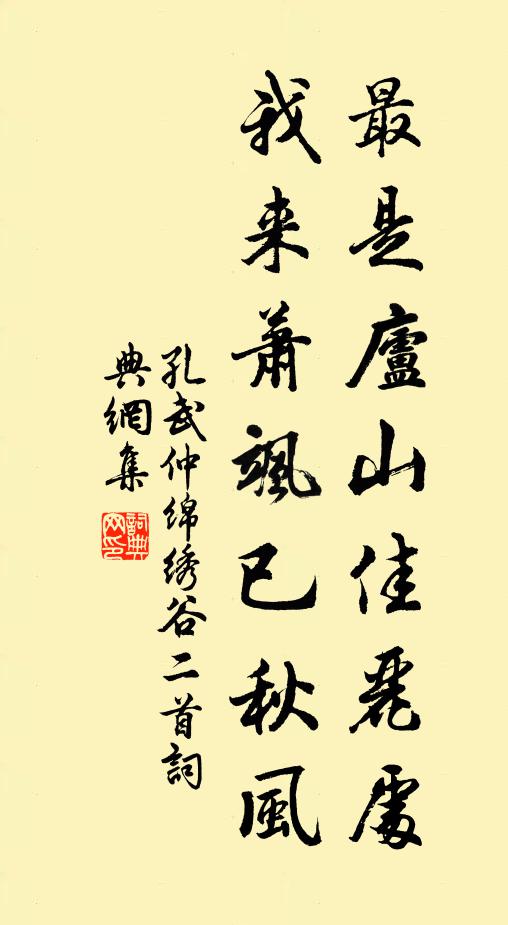 最是廬山佳麗處
我来蕭颯已秋風
孔武仲綿綉谷二首詞
典網集
詞典
网印